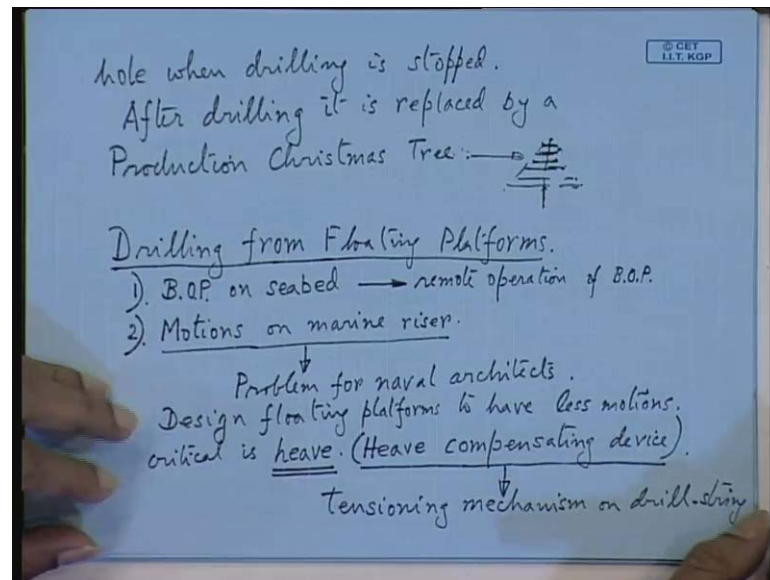 © CET
I.I.T. KGP
hole when drilling is stopped.
After drilling it is replaced by a
Production Christmas Tree :
Drilling from Floating Platforms.
1). B.O.P. on seabed → remote operation of B.O.P.
2). Motions on marine riser.
Problem for naval architects.
Design floating platforms to have less motions.
critical is heave. (Heave compensating device).
Tensioning mechanism on drill-string